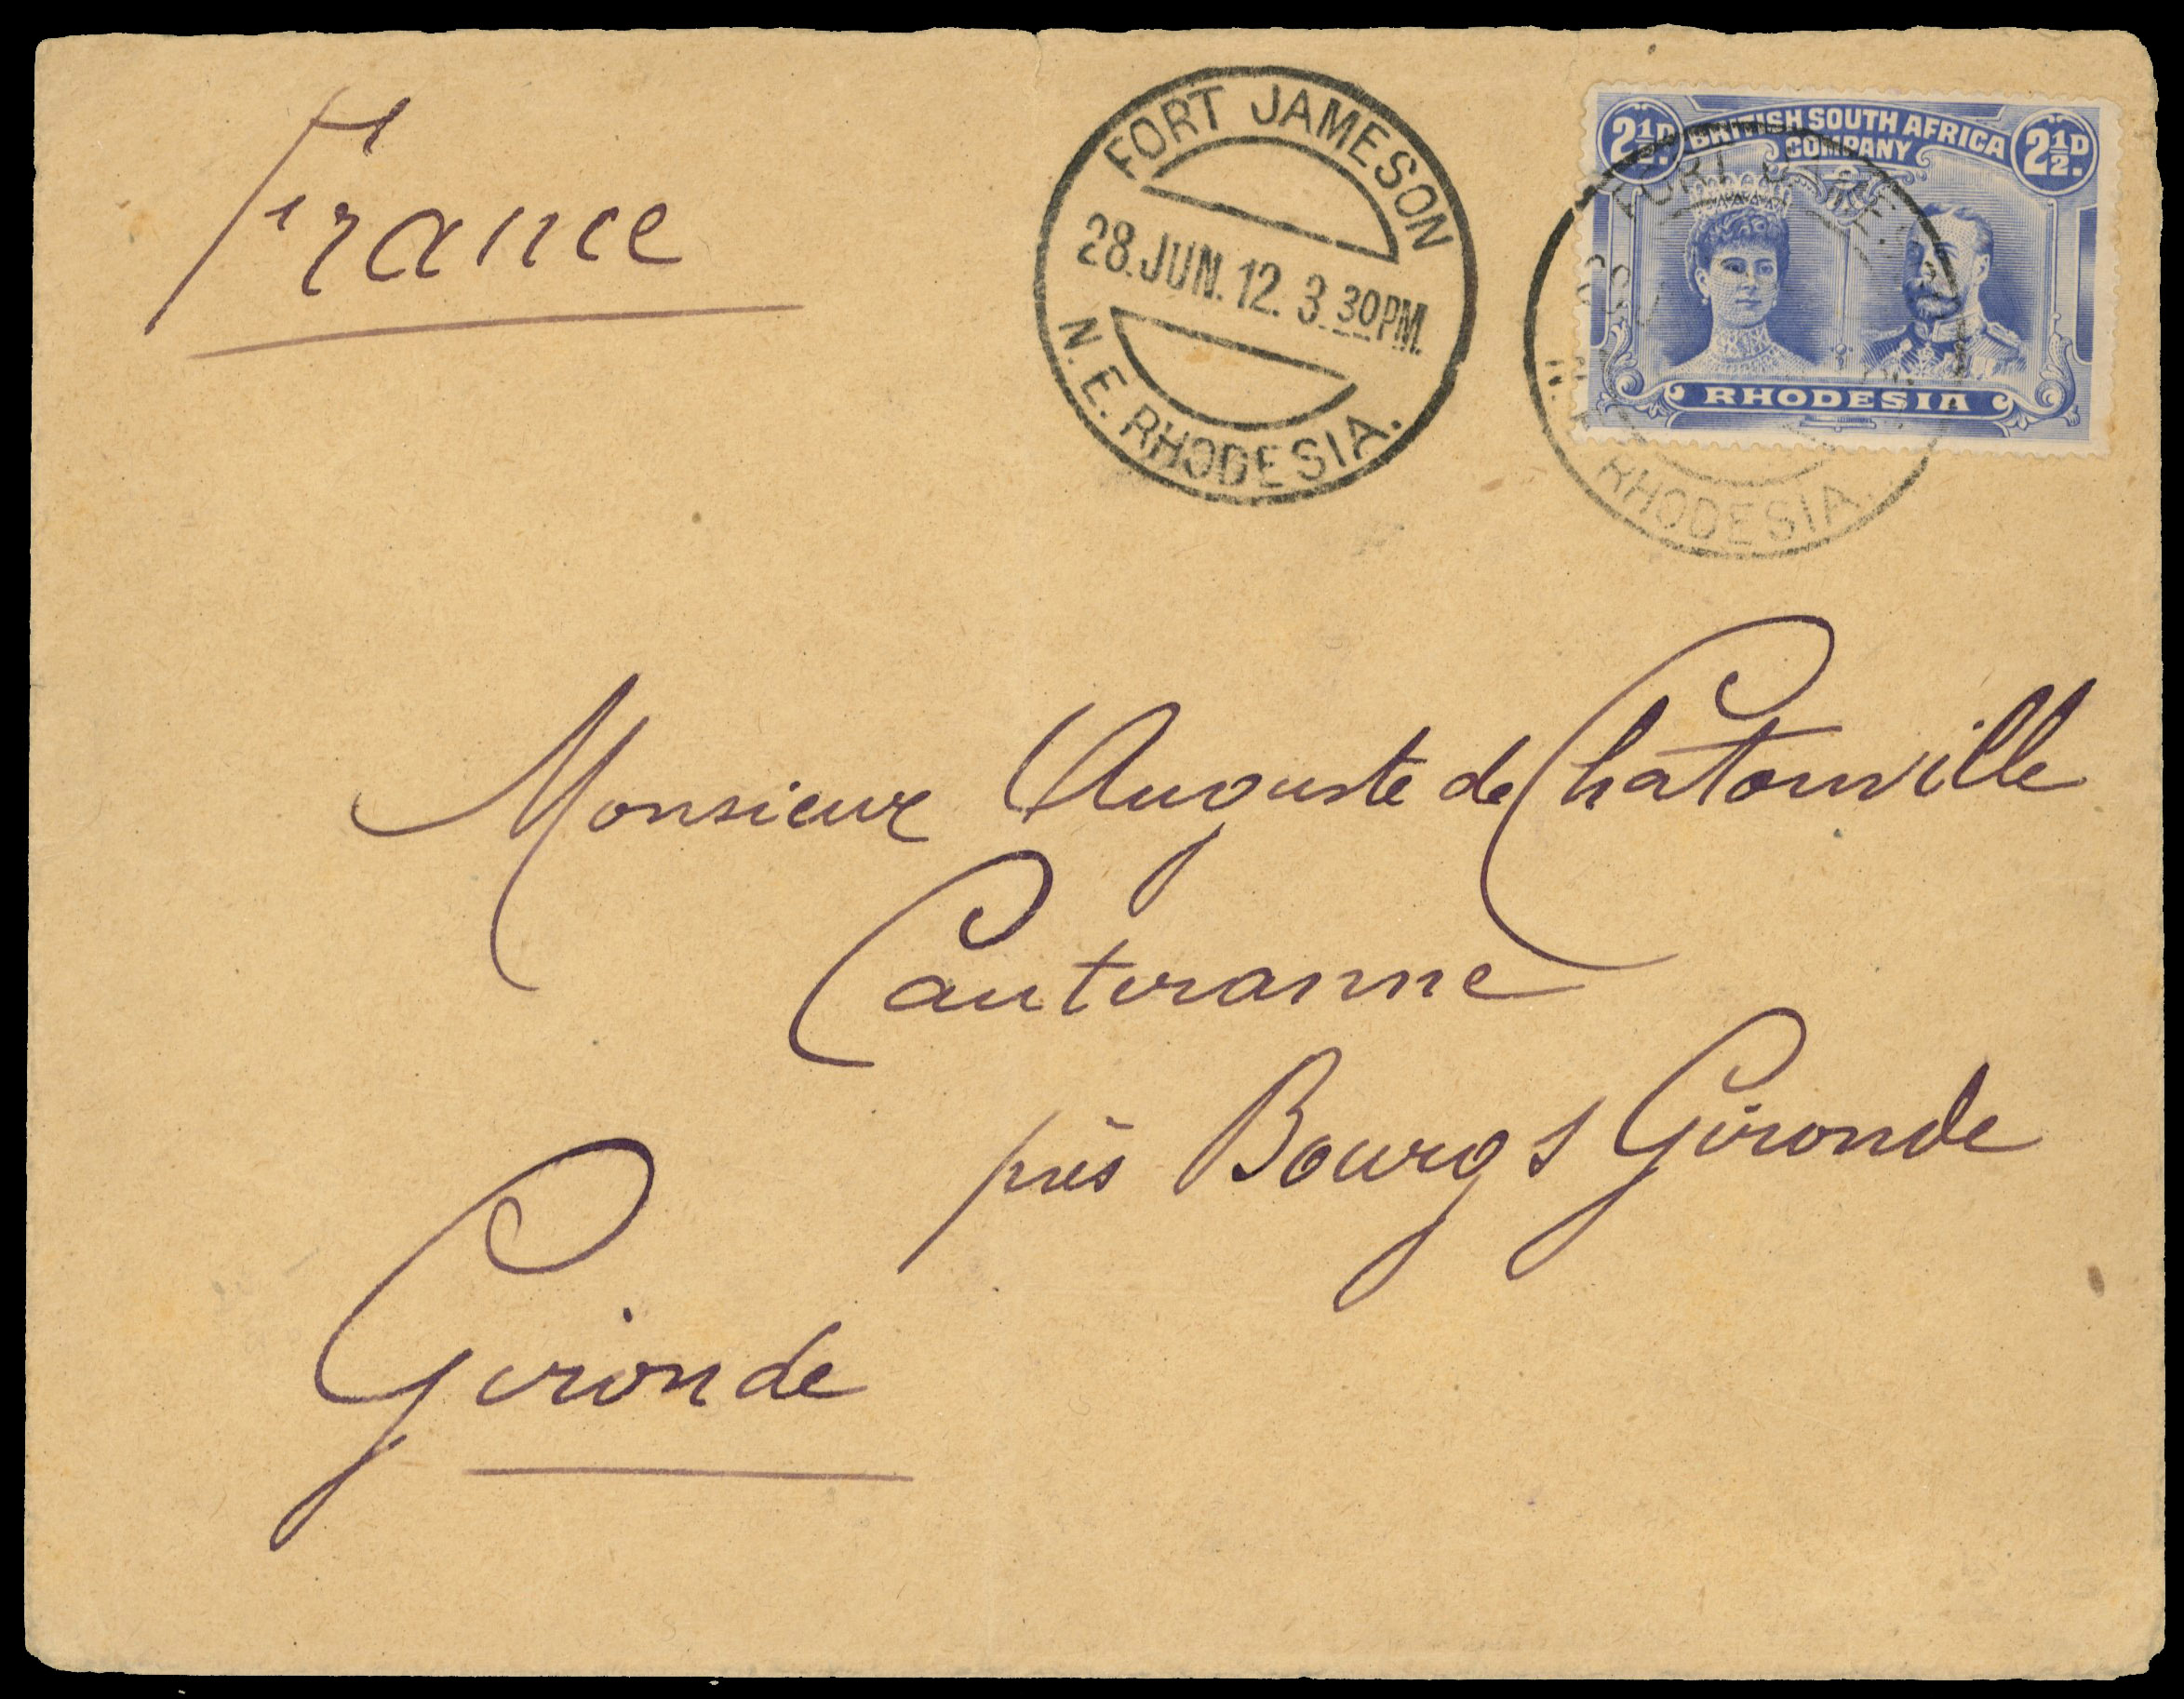 France
FORT JAMESON
28.JUN.12. 3.30PM.
N.E. RHODESIA.
2½D. BRITISH SOUTH AFRICA 2½D.
COMPANY
RHODESIA
RHODESIA.
Monsieur Auguste de Chatouville
Cauturanne
près Bourg s/ Gironde
Gironde